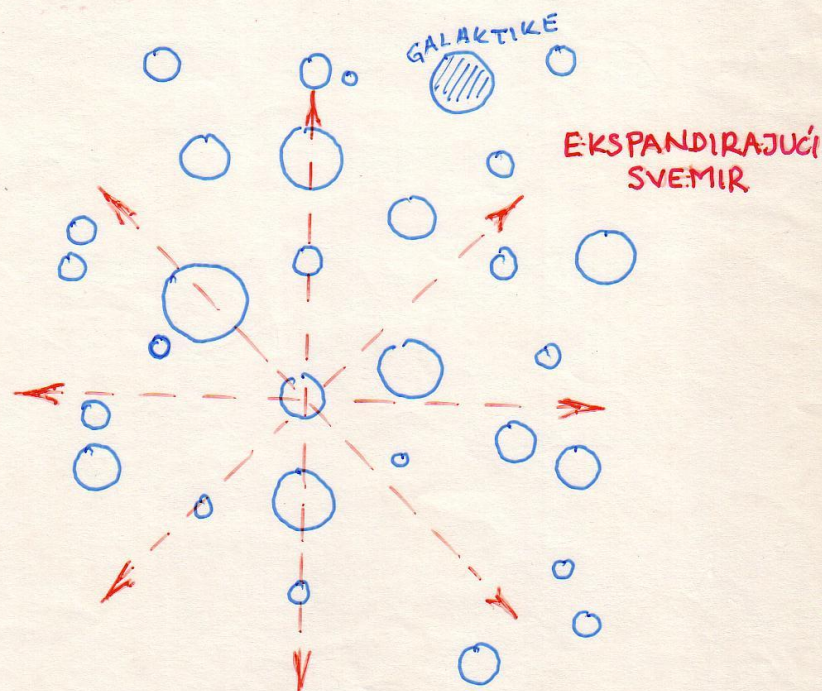 GALAKTIKE
EKSPANDIRAJUĆI
SVEMIR